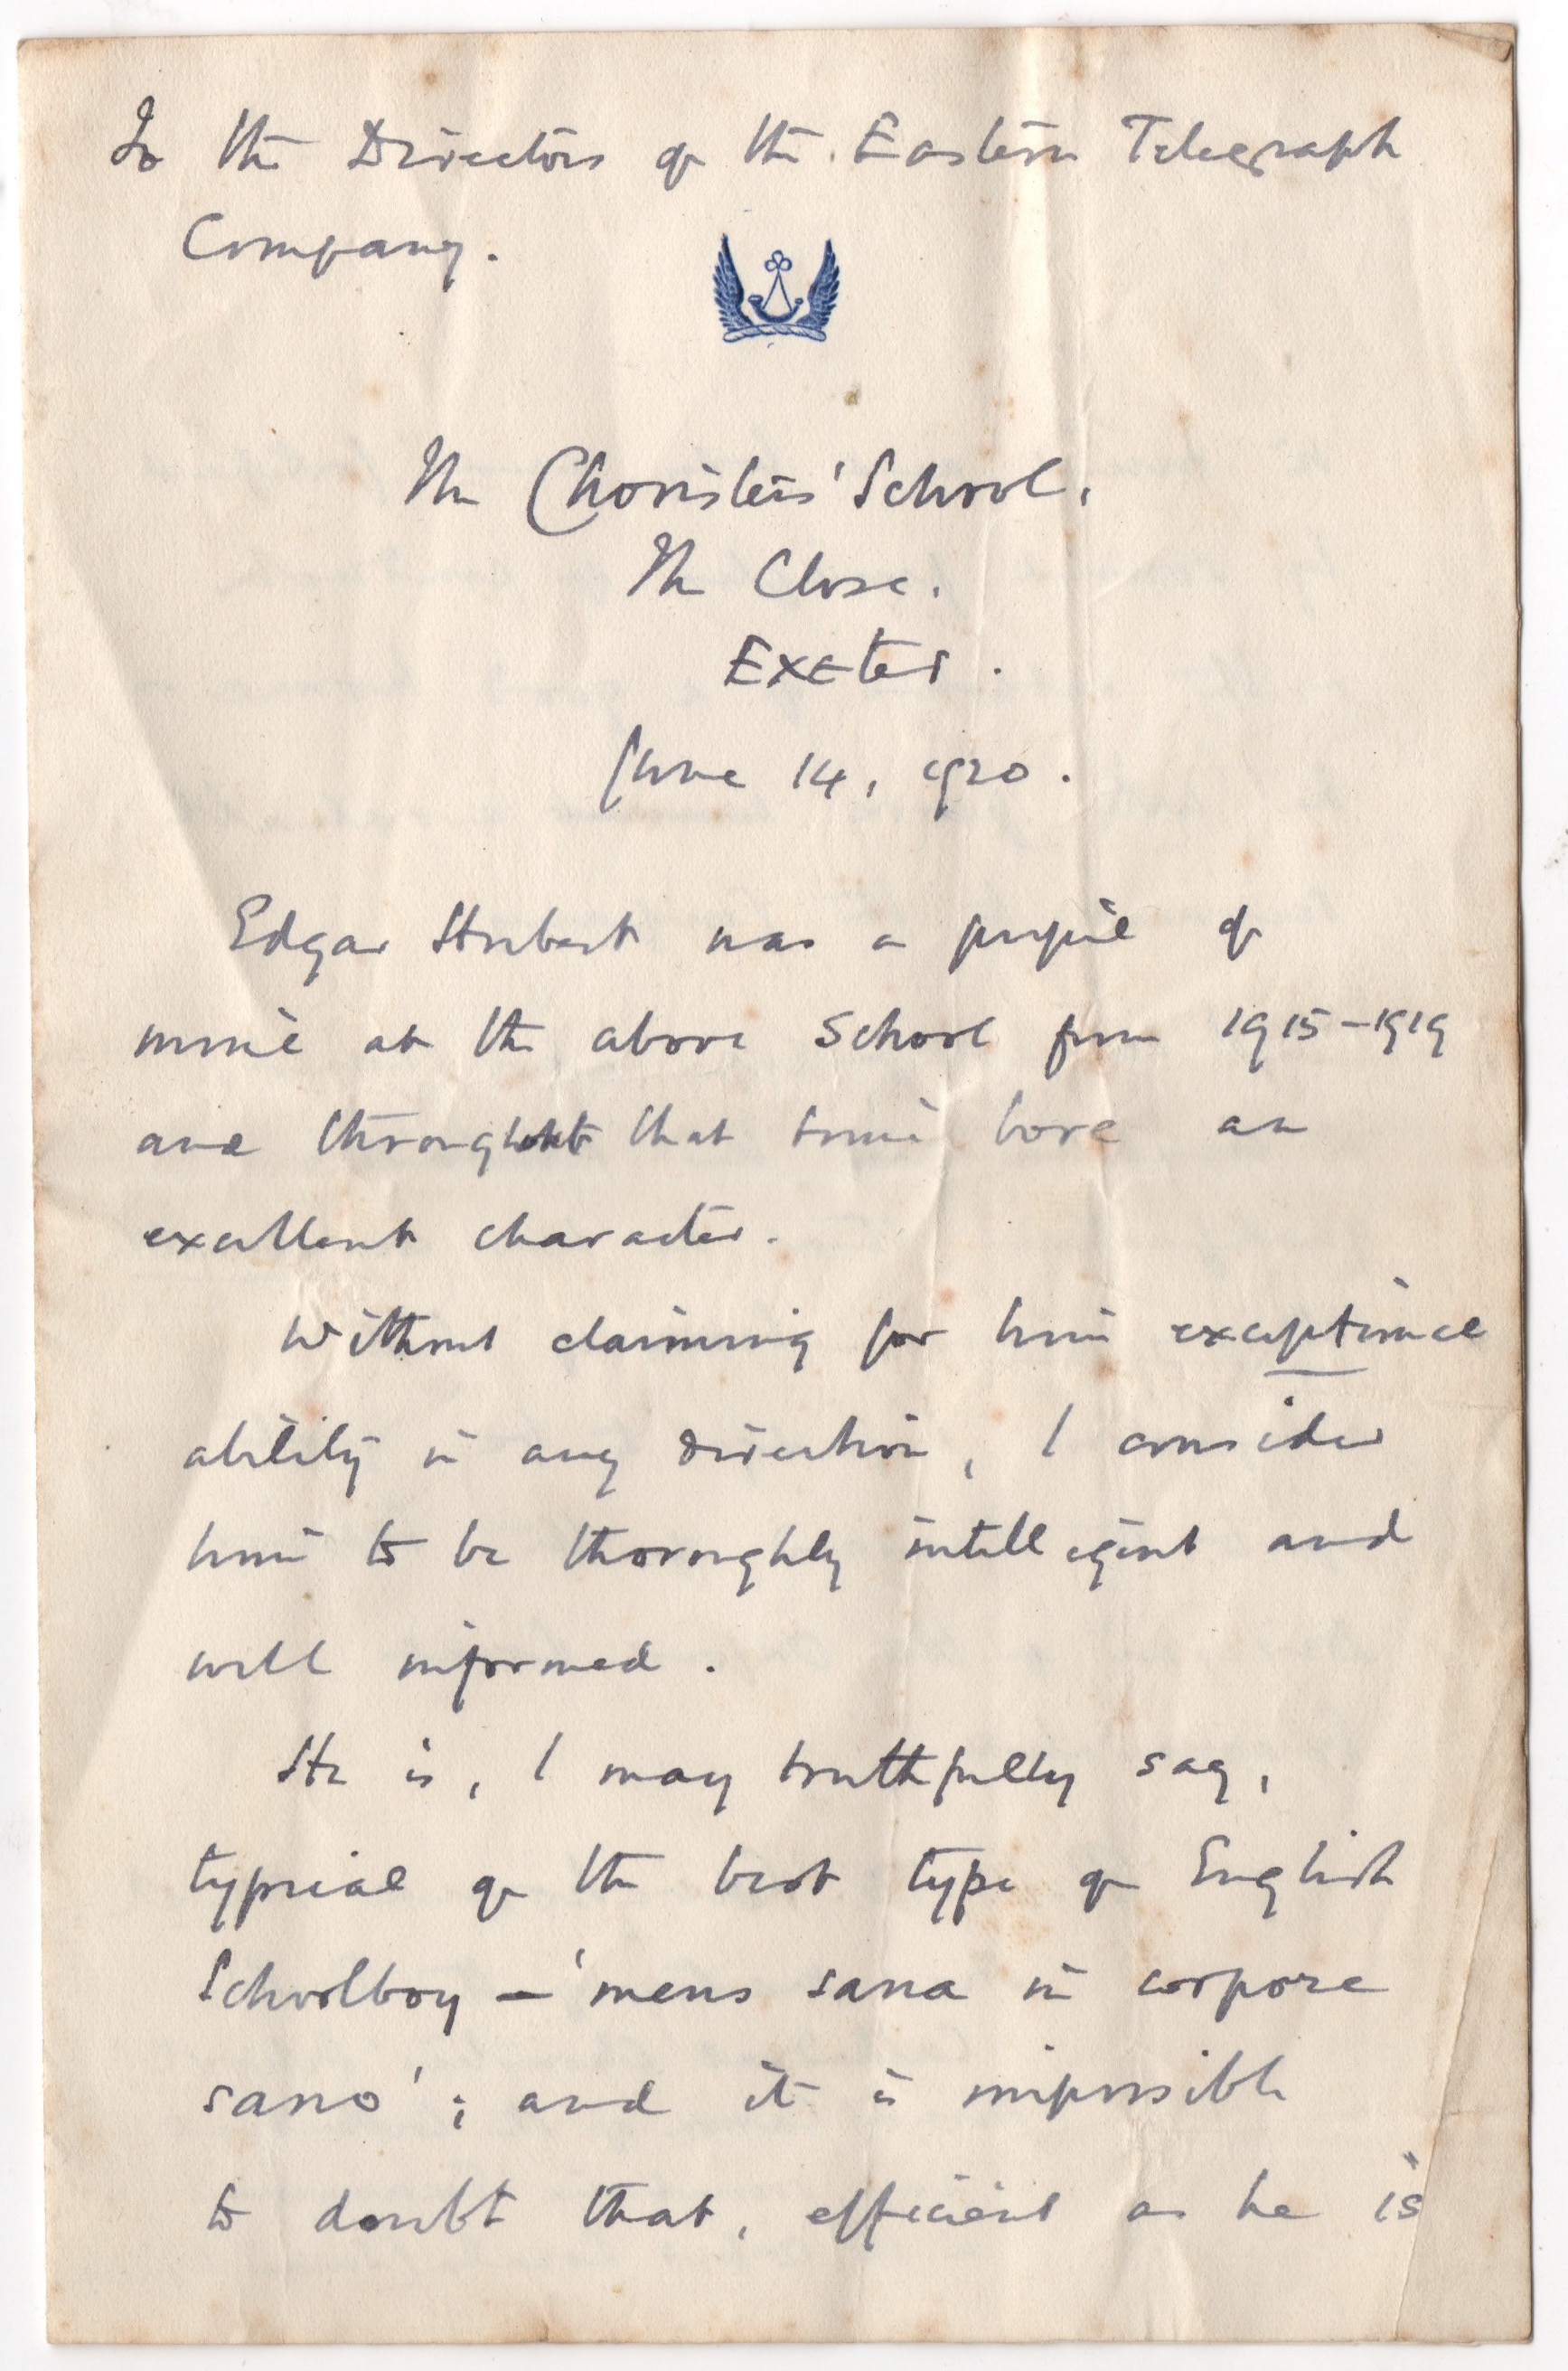 To the Directors of the Eastern Telegraph
Company.
The Choristers' School,
The Close.
Exeter.
June 14, 1920.
Edgar Herbert was a pupil of
mine at the above School from 1915-1919
and throughout that time bore an
excellent character.
Without claiming for him exceptional
ability in any direction, I consider
him to be thoroughly intelligent and
well informed.
He is, I may truthfully say,
typical of the best type of English
Schoolboy — 'mens sana in corpore
sano'; and it is impossible
to doubt that, efficient as he is